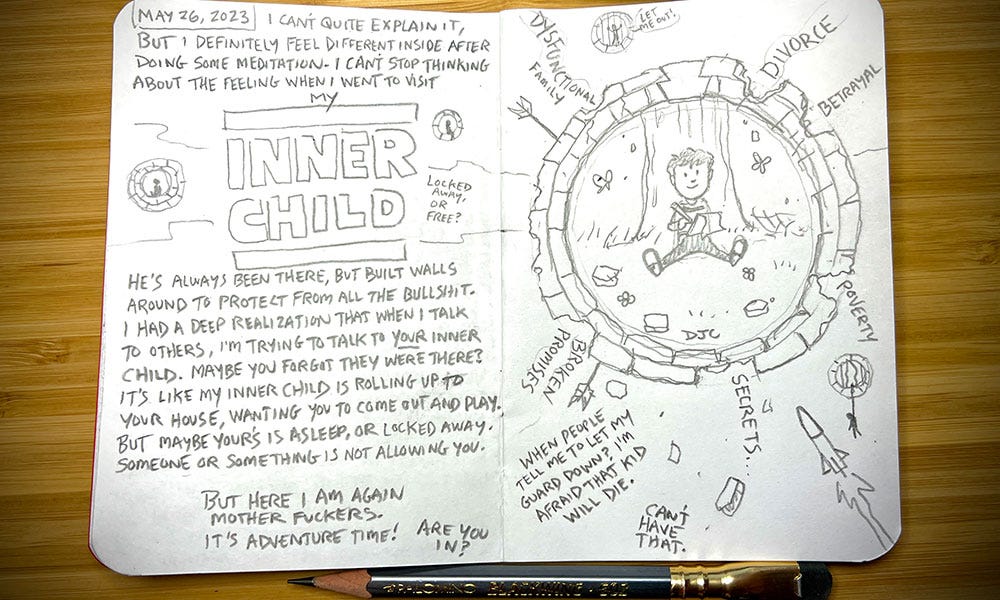 MAY 26, 2023 I CAN'T QUITE EXPLAIN IT,
BUT I DEFINITELY FEEL DIFFERENT INSIDE AFTER
DOING SOME MEDITATION. I CAN'T STOP THINKING
ABOUT THE FEELING WHEN I WENT TO VISIT
MY
INNER
CHILD
LOCKED
AWAY,
OR
FREE?
HE'S ALWAYS BEEN THERE, BUT BUILT WALLS
AROUND TO PROTECT FROM ALL THE BULLSHIT.
I HAD A DEEP REALIZATION THAT WHEN I TALK
TO OTHERS, I'M TRYING TO TALK TO YOUR INNER
CHILD. MAYBE YOU FORGOT THEY WERE THERE?
IT'S LIKE MY INNER CHILD IS ROLLING UP TO
YOUR HOUSE, WANTING YOU TO COME OUT AND PLAY.
BUT MAYBE YOUR'S IS ASLEEP, OR LOCKED AWAY.
SOMEONE OR SOMETHING IS NOT ALLOWING YOU.
BUT HERE I AM AGAIN
MOTHER FUCKERS.
IT'S ADVENTURE TIME!
ARE YOU
IN?
DYSFUNCTIONAL
FAMILY
LET
ME OUT!
DIVORCE
BETRAYAL
POVERTY
DJC
BROKEN
PROMISES
SECRETS...
WHEN PEOPLE
TELL ME TO LET MY
GUARD DOWN?, I'M
AFRAID THAT KID
WILL DIE.
CAN'T
HAVE
THAT.
PALOMINO BLACKWING